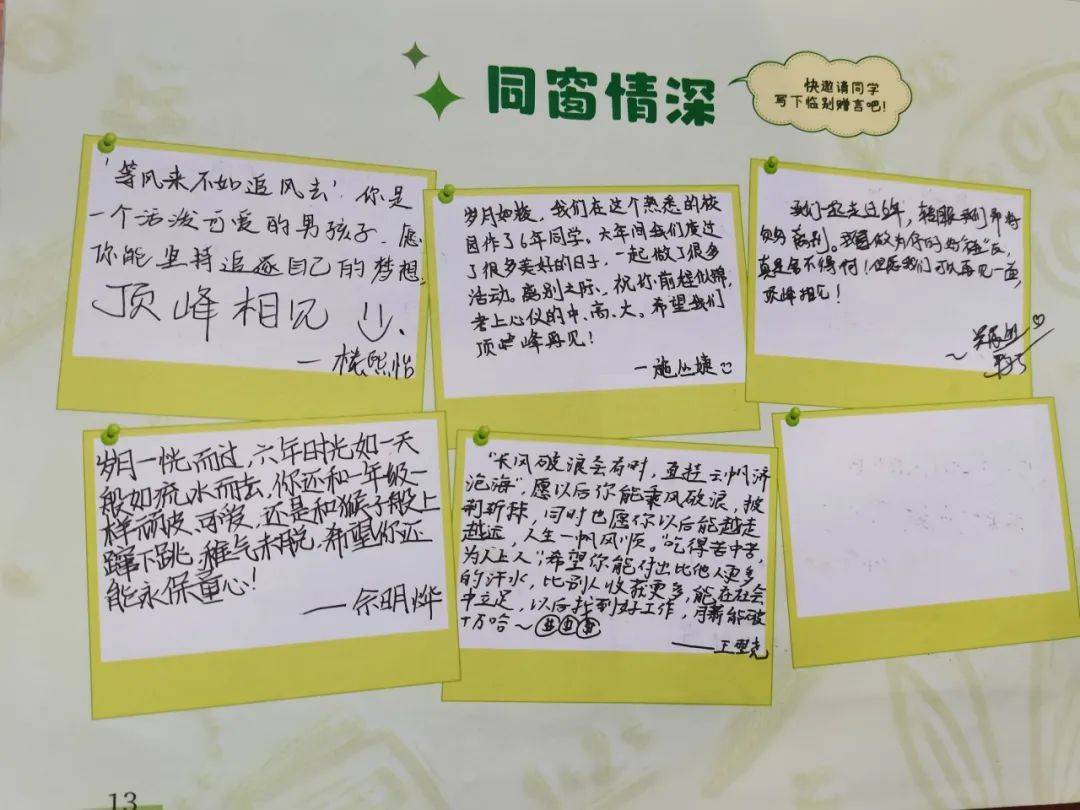 同窗情深
快邀请同学
写下临别赠言吧！
'等风来不如追风去'你是
一个活泼可爱的男孩子，愿
你能坚持追逐自己的梦想，
顶峰相见
一楼熙怡
岁月如梭，我们在这个熟悉的校
园作了6年同学。六年间我们度过
了很多美好的日子，一起做了很多
活动。离别之际、祝你前程似锦，
考上心仪的中、高、大。希望我们
顶峰再见！
一施丛婕
我们一起走过6年，转眼我们即将
离别。我做为你的
真是舍不得你！但愿我们可以再见一面，
顶峰相见！
岁月一恍而过，六年时光如一天
般如流水而去，你还和一年级一
样顽皮、可爱，还是和猴子般上
蹿下跳，稚气未脱，希望你还
能永保童心！
——余明烨
“长风破浪会有时，直挂云帆济
沧海”，愿以后你能乘风破浪，披
荆斩棘，同时也愿你以后能越走
越远，人生一帆风顺。“吃得苦中苦，
为人上人”，希望你能付出比他人更多
的汗水，比别人收获更多，能在社会
中立足，以后找到好工作，月薪能破
十万哈～
——王
13